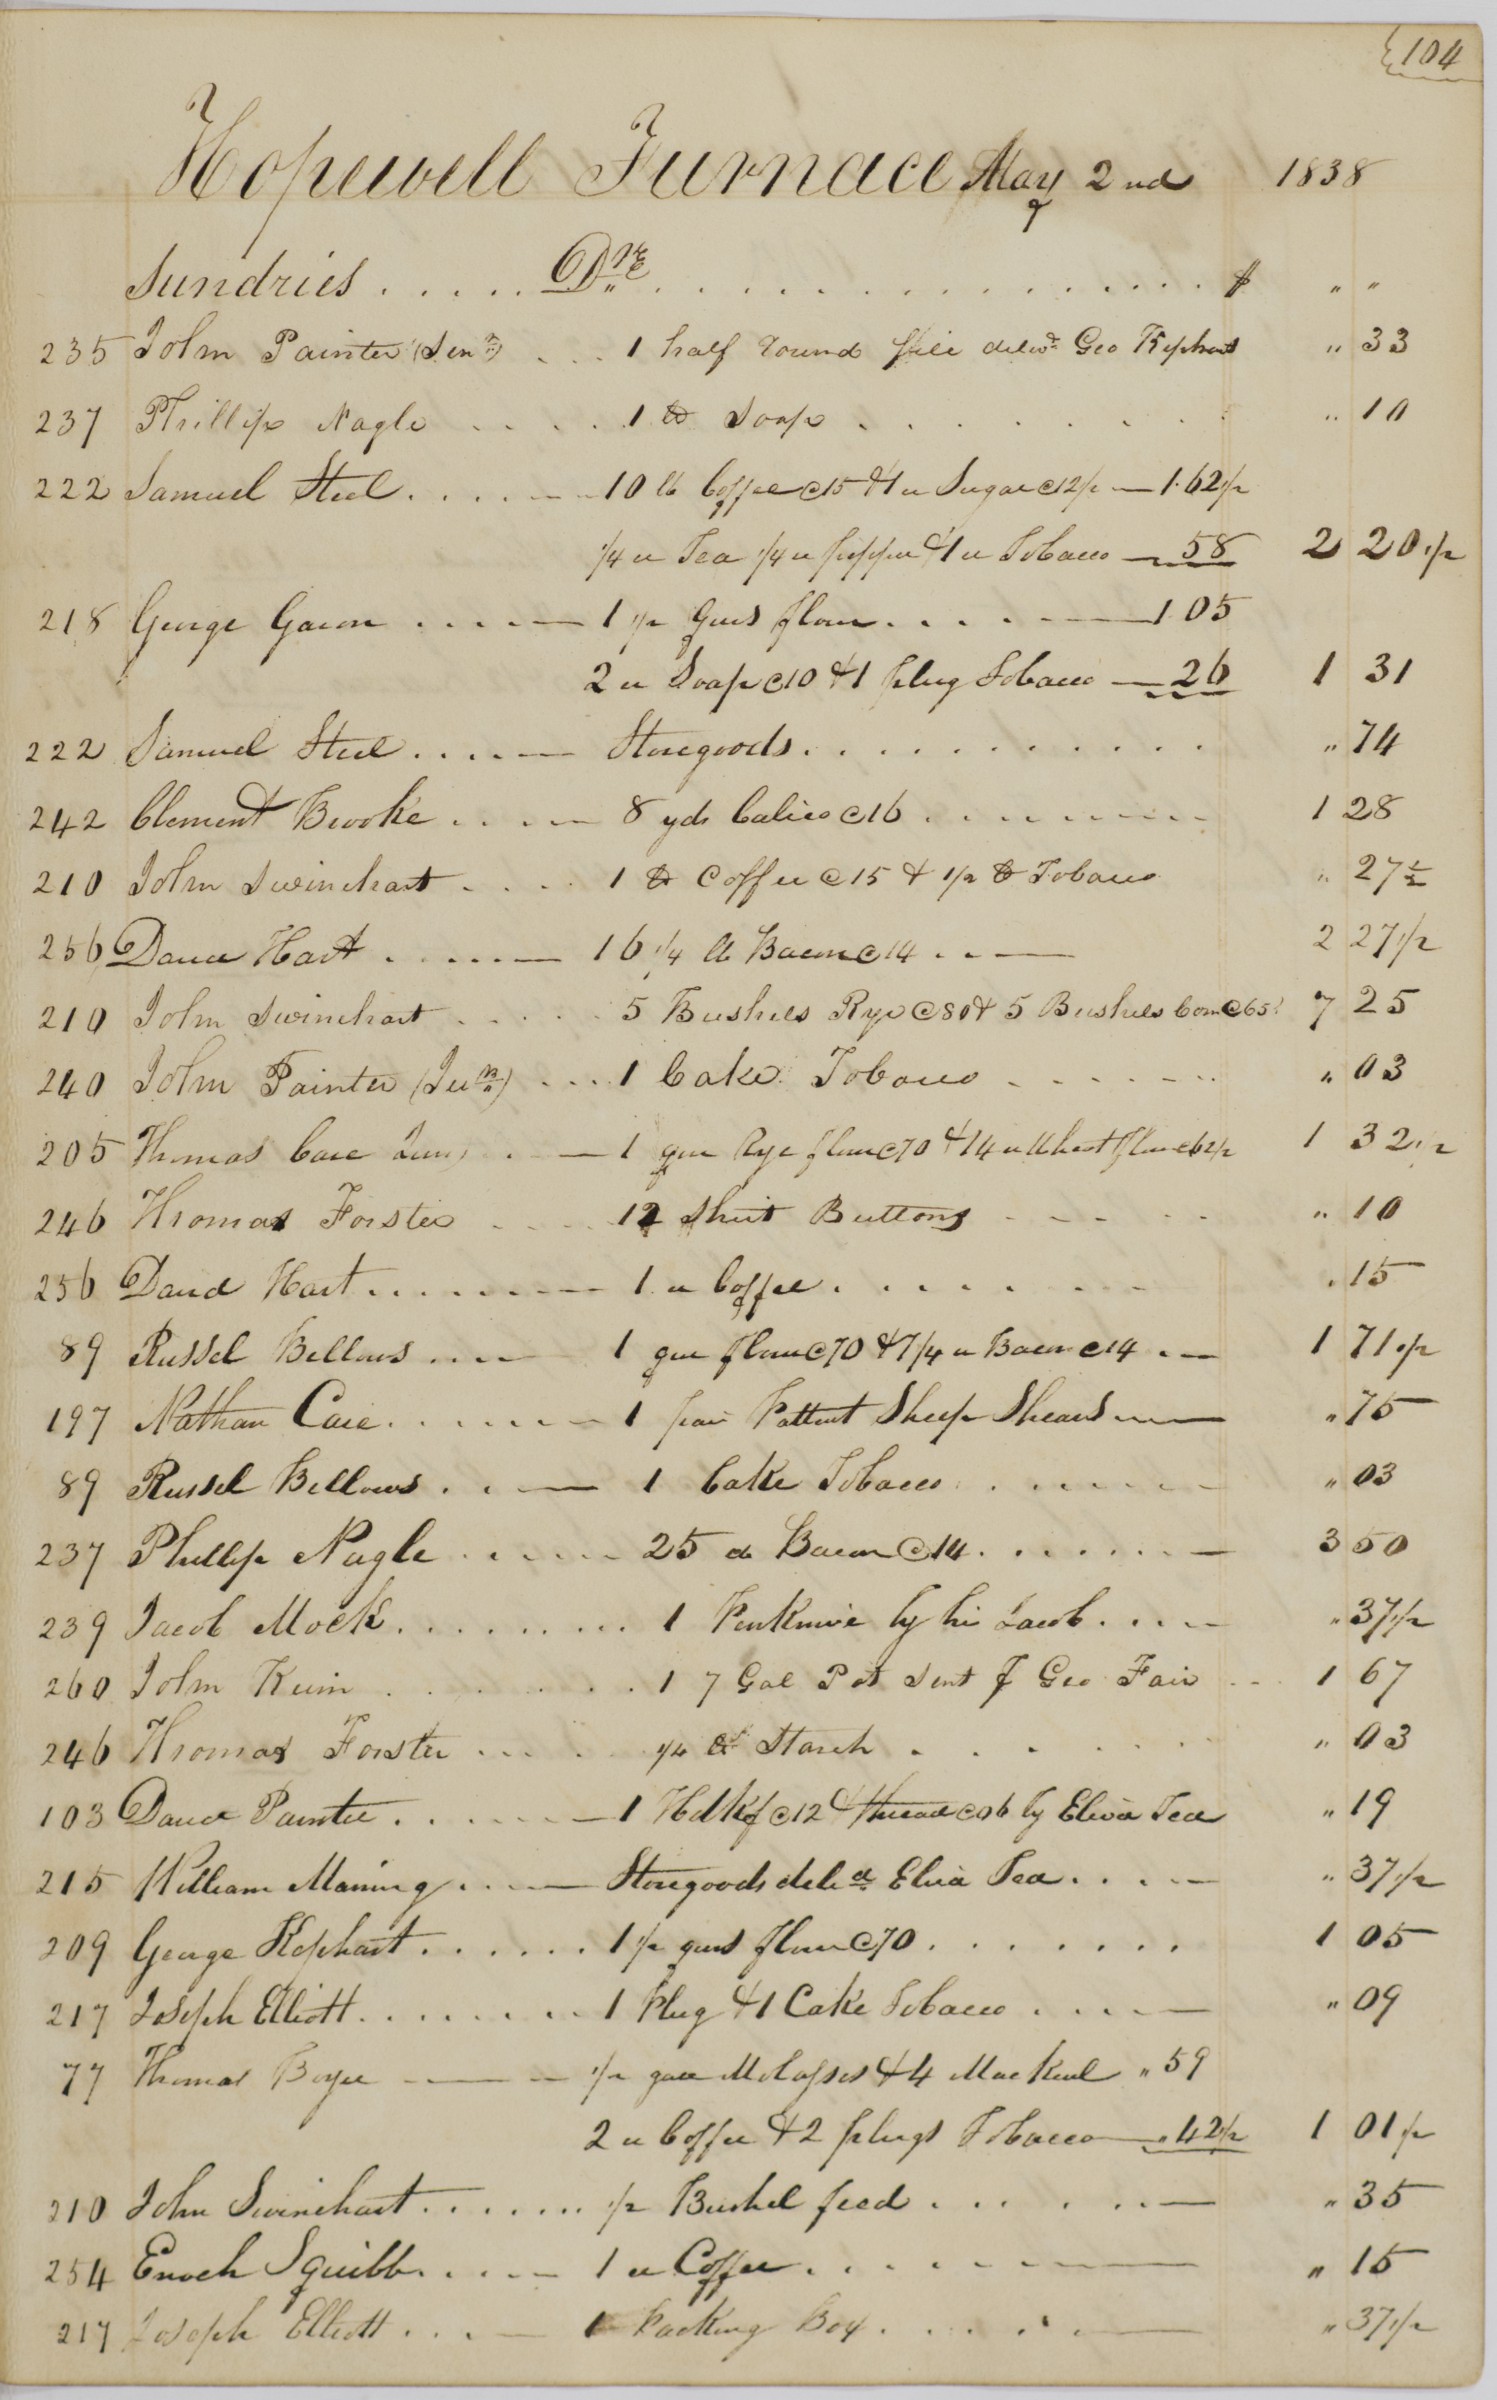 104
Hopewell Furnace May 2nd 1838
Sundries . . . . . Drs . . . . . . . . . . . . . . . . . . $ " "
235 John Painter (Senr) . . . 1 half round file delivd Geo Kephart " 33
237 Phillip Nagle . . . . . 1 lb Soap . . . . . . . . " 10
222 Samuel Steel . . . . . 10 lb Coffee @ 15 & 1 " Sugar @ 12 1/2 — 1.62 1/2
1/4 " Tea 1/4 " pepper & 1 " Tobacco — 58 2 20 1/2
218 George Gacon . . . . — 1 1/2 Qurs flour . . . . . — 1 05
2 " Soap @ 10 & 1 plug Tobacco — 26 1 31
222 Samuel Steel . . . . — Storegoods . . . . . . . . . . . " 74
242 Clement Brooke . . . . — 8 yds Calico @ 16 . . . . . . . . . 1 28
210 John Swinehart . . . . 1 lb Coffee @ 15 & 1/2 lb Tobacco " 27 1/2
256 David Hart . . . . . — 16 1/4 lb Bacon @ 14 . . — 2 27 1/2
210 John Swinehart . . . . . 5 Bushels Rye @ 80 & 5 Bushels Corn @ 65 7 25
240 John Painter (Junr) . . . . 1 Cake Tobacco . . . . . . . " 03
205 Thomas Care Junr . . — 1 qur Rye flour @ 70 & 14 " Wheat flour 62 1/2 1 32 1/2
246 Thomas Forster . . . . 12 Shirt Buttons . . . . . . " 10
256 David Hart . . . . . . . — 1 " Coffee . . . . . . . . " 15
89 Russel Bellows . . . . — 1 qur flour @ 70 & 7 1/4 " Bacon @ 14 . — 1 71 1/2
197 Nathan Care . . . . . . — 1 pair Pattent Sheep Shears — " 75
89 Russel Bellows . . — 1 Cake Tobacco . . . . . . . " 03
237 Phillip Nagle . . . . . . 25 do Bacon @ 14 . . . . . . . — 3 50
239 Jacob Mock . . . . . . . . . 1 Penknive by his Jacob . . . . — " 37 1/2
260 John Keim . . . . . . . 1 7 Gal Pot Sent p Geo Fair . . . 1 67
246 Thomas Forster . . . . 1/4 lb Starch . . . . . . . " 03
103 David Painter . . . . . . — 1 Hdkf @ 12 & thread @ 06 by Eliza Tea " 19
215 William Maning . . . — Storegoods deld Eliza Tea . . . . — " 37 1/2
209 George Kephart . . . . . . 1 1/2 qurs flour @ 70 . . . . . . . . 1 05
217 Joseph Elliott . . . . . . . . 1 Plug & 1 Cake Tobacco . . . . — " 09
77 Thomas Boyer — — 1/2 gall Molasses & 4 Mackerel " 59
2 " Coffee & 2 plugs Tobacco — " 42 1/2 1 01 1/2
210 John Swinehart . . . . . . . 1/2 Bushel feed . . . . . . . — " 35
254 Enoch Squibb . . . . — 1 " Coffee . . . . . . . . — " 15
217 Joseph Elliott . . . . — 1 Packing Box . . . . . . — " 37 1/2